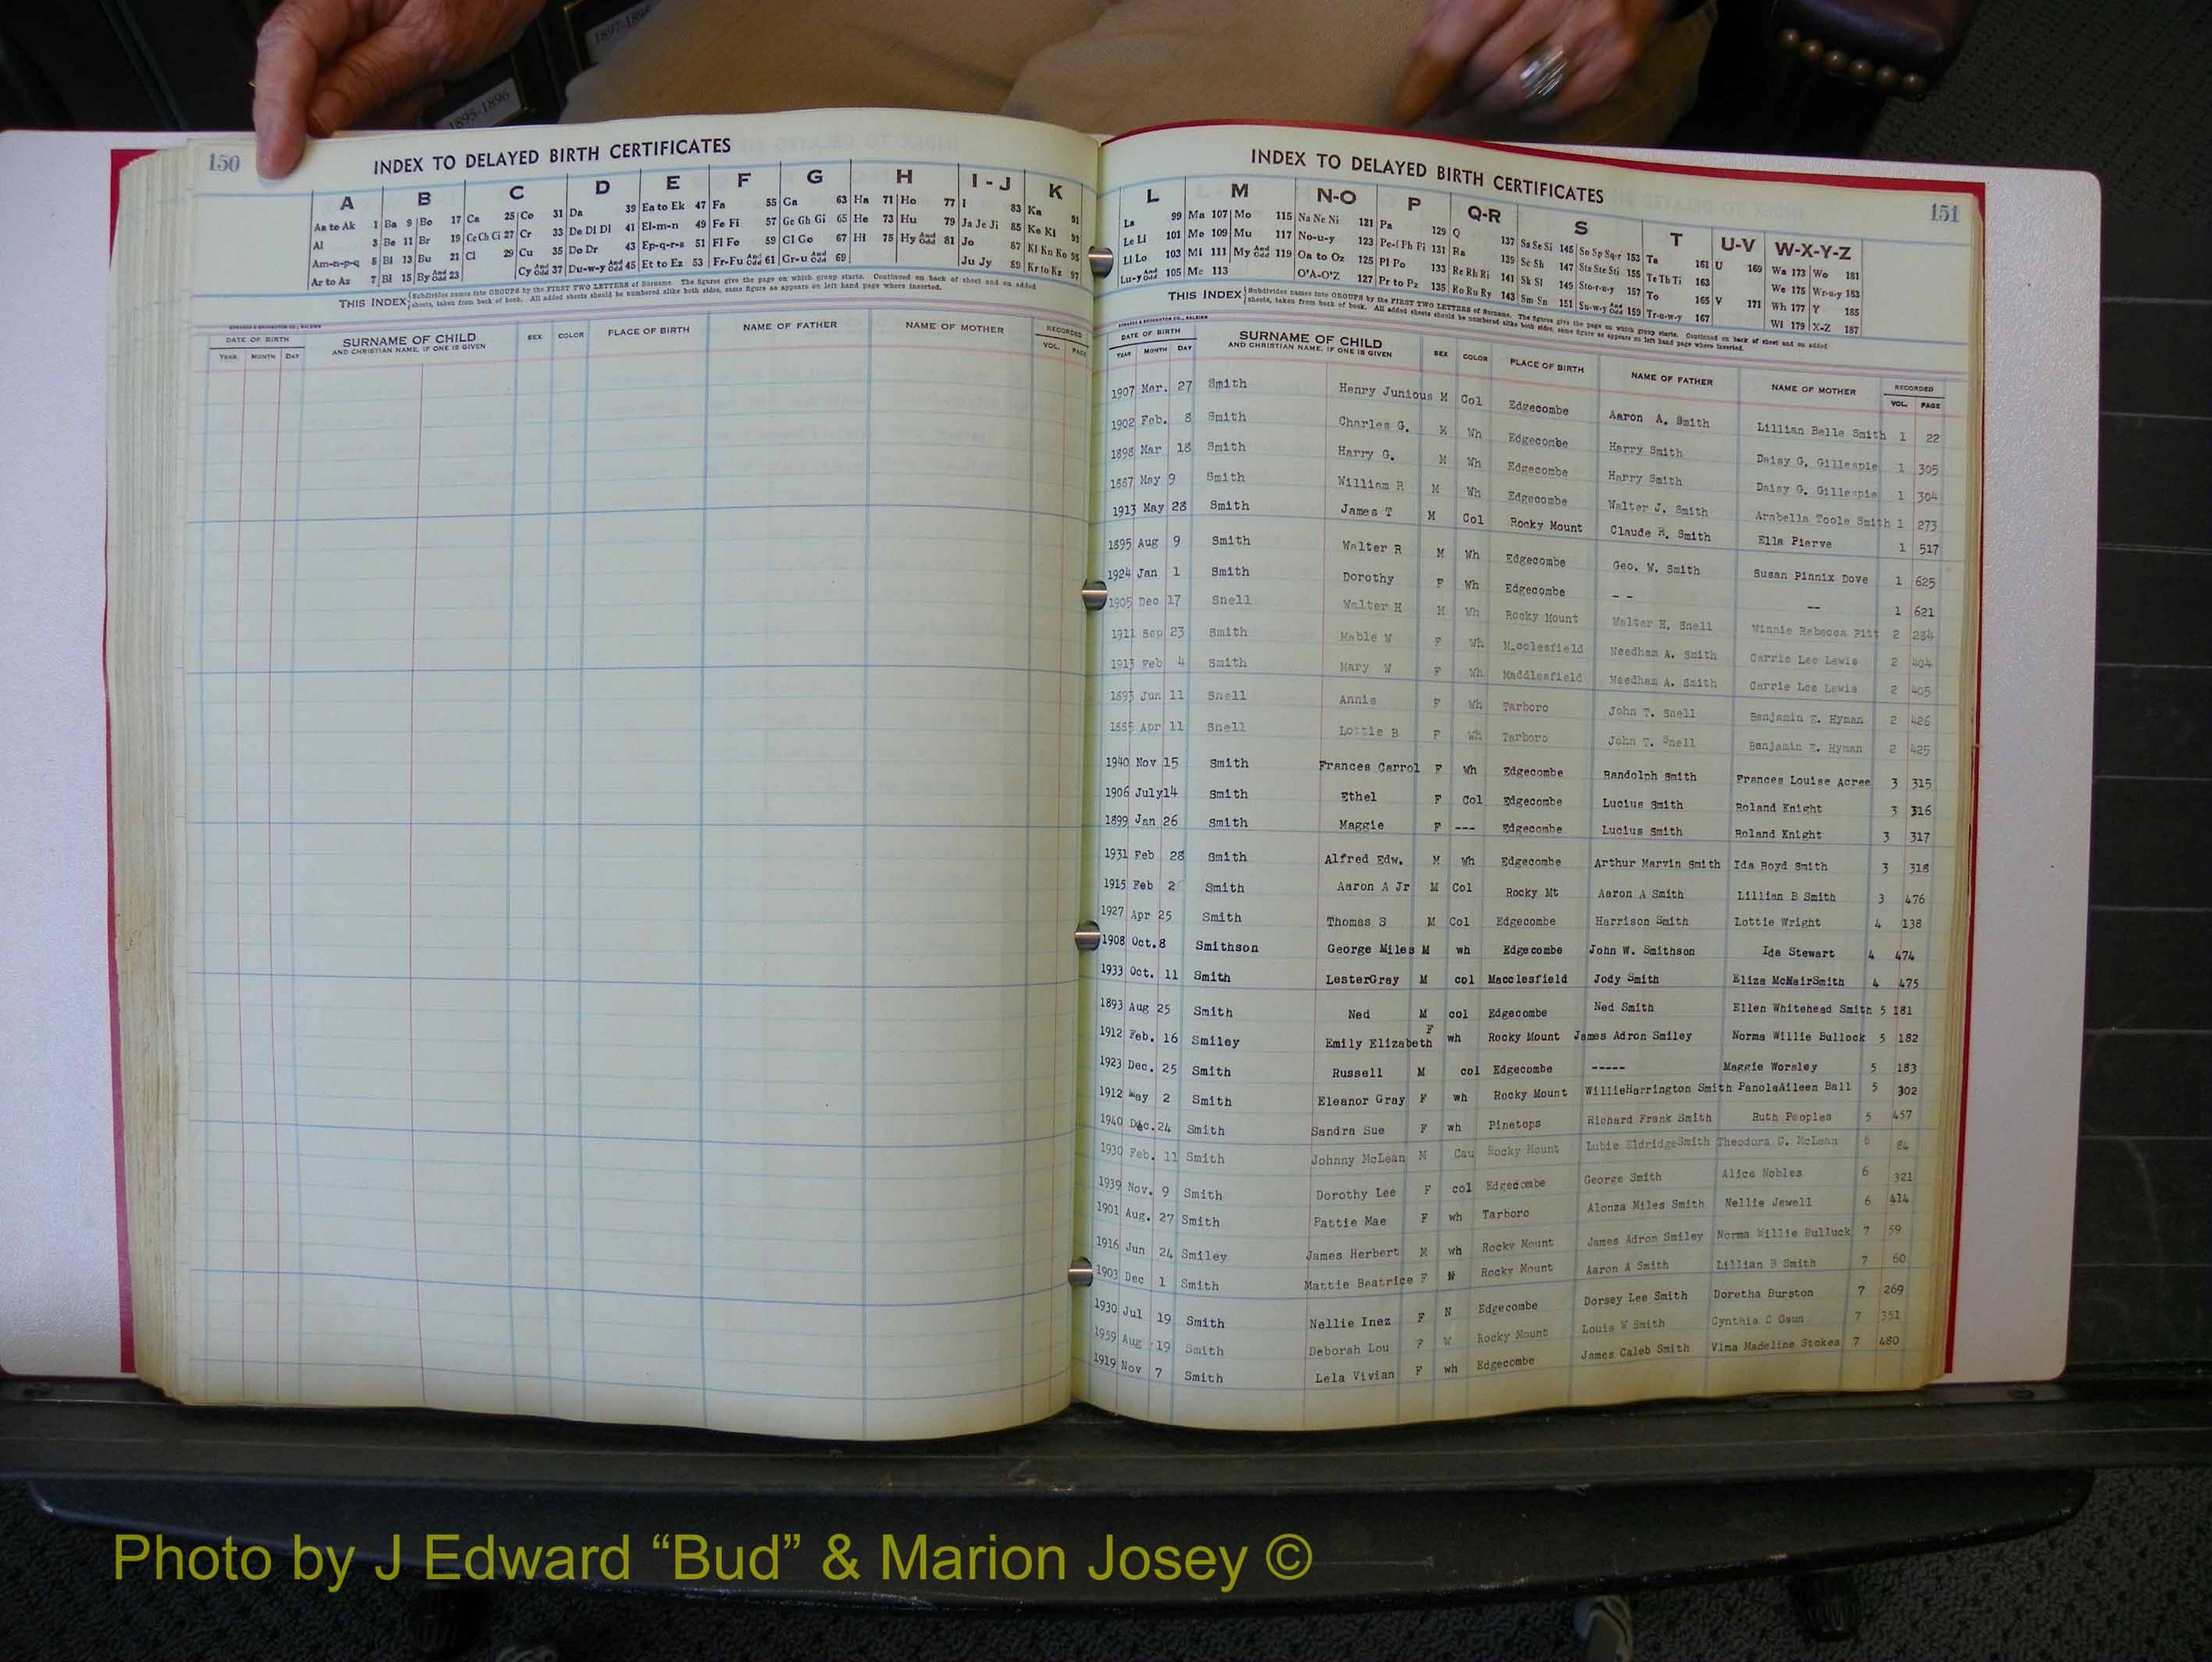 1897-1898
1895-1896
150
INDEX TO DELAYED BIRTH CERTIFICATES
A B C D E F G H I - J K
Aa to Ak 1 Ba 9 Bo 17 Ca 25 Co 31 Da 39 Ea to Ek 47 Fa 55 Ga 63 Ha 71 Ho 77 I 83 Ka 91
Al 3 Be 11 Br 19 Ce Ch Ci 27 Cr 33 De Di Dl 41 El-m-n 49 Fe Fi 57 Ge Gh Gi 65 He 73 Hu 79 Ja Je Ji 85 Ke Ki 93
Am-n-p-q 5 Bi 13 Bu 21 Cl 29 Cu 35 Do Dr 43 Ep-q-r-s 51 Fl Fo 59 Gl Go 67 Hi 75 Hy And Odd 81 Jo 87 Kl Kn Ko 95
Ar to Az 7 Bl 15 By And Odd 23 Cy And Odd 37 Du-w-y And Odd 45 Et to Ez 53 Fr-Fu And Odd 61 Gr-u And Odd 69 Ju Jy 89 Kr to Kz 97
THIS INDEX Subdivides names into GROUPS by the FIRST TWO LETTERS of Surname. The figures give the page on which group starts. Continued on back of sheet and on added
sheets, taken from back of book. All added sheets should be numbered alike both sides, same figure as appears on left hand page where inserted.
EDWARDS & BROUGHTON CO., RALEIGH
DATE OF BIRTH SURNAME OF CHILD SEX COLOR PLACE OF BIRTH NAME OF FATHER NAME OF MOTHER RECORDED
YEAR MONTH DAY AND CHRISTIAN NAME, IF ONE IS GIVEN VOL. PAGE
INDEX TO DELAYED BIRTH CERTIFICATES
151
L M N-O P Q-R S T U-V W-X-Y-Z
La 99 Ma 107 Mo 115 Na Ne Ni 121 Pa 129 Q 137 Sa Se Si 145 So Sp Sq-r 153 Ta 161 U 169 Wa 173 Wo 181
Le Li 101 Me 109 Mu 117 No-u-y 123 Pe-f Ph Pi 131 Ra 139 Sc Sh 147 Sta Ste Sti 155 Te Th Ti 163 We 175 Wr-u-y 183
Ll Lo 103 Mi 111 My And Odd 119 Oa to Oz 125 Pl Po 133 Re Rh Ri 141 Sk Sl 149 Sto-r-u-y 157 To 165 V 171 Wh 177 Y 185
Lu-y And Odd 105 Mc 113 O'A-O'Z 127 Pr to Pz 135 Ro Ru Ry 143 Sm Sn 151 Su-w-y And Odd 159 Tr-u-w-y 167 Wi 179 X-Z 187
THIS INDEX Subdivides names into GROUPS by the FIRST TWO LETTERS of Surname. The figures give the page on which group starts. Continued on back of sheet and on added
sheets, taken from back of book. All added sheets should be numbered alike both sides, same figure as appears on left hand page where inserted.
EDWARDS & BROUGHTON CO., RALEIGH
DATE OF BIRTH SURNAME OF CHILD SEX COLOR PLACE OF BIRTH NAME OF FATHER NAME OF MOTHER RECORDED
YEAR MONTH DAY AND CHRISTIAN NAME, IF ONE IS GIVEN VOL. PAGE
1907 Mar. 27 Smith Henry Junious M Col Edgecombe Aaron A. Smith Lillian Belle Smith 1 22
1902 Feb. 8 Smith Charles G. M Wh Edgecombe Harry Smith Daisy G. Gillespie 1 305
1898 Mar 18 Smith Harry G. M Wh Edgecombe Harry Smith Daisy G. Gillespie 1 304
1887 May 9 Smith William R M Wh Edgecombe Walter J. Smith Arabella Toole Smith 1 273
1913 May 28 Smith James T M Col Rocky Mount Claude R. Smith Ella Pierve 1 517
1895 Aug 9 Smith Walter R M Wh Edgecombe Geo. W. Smith Susan Pinnix Dove 1 625
1924 Jan 1 Smith Dorothy F Wh Edgecombe - - -- 1 621
1905 Dec 17 Snell Walter H M Wh Rocky Mount Walter H. Snell Winnie Rebecca Pitt 2 234
1911 Sep 23 Smith Mable W F Wh Mccclesfield Needham A. Smith Carrie Lee Lewis 2 404
1913 Feb 4 Smith Mary W F Wh Maddlesfield Needham A. Smith Carrie Lee Lewis 2 405
1893 Jun 11 Snell Annie F Wh Tarboro John T. Snell Benjamin E. Hyman 2 426
1885 Apr 11 Snell Lottie B F Wh Tarboro John T. Snell Benjamin E. Hyman 2 425
1940 Nov 15 Smith Frances Carrol F Wh Edgecombe Randolph Smith Frances Louise Acree 3 315
1906 July 14 Smith Ethel F Col Edgecombe Lucius Smith Roland Knight 3 316
1899 Jan 26 Smith Maggie F --- Edgecombe Lucius Smith Roland Knight 3 317
1931 Feb 28 Smith Alfred Edw. M Wh Edgecombe Arthur Marvin Smith Ida Boyd Smith 3 318
1915 Feb Smith Aaron A Jr M Col Rocky Mt Aaron A Smith Lillian B Smith 3 476
1927 Apr 25 Smith Thomas S M Col Edgecombe Harrison Smith Lottie Wright 4 138
1908 Oct. 8 Smithson George Miles M wh Edgecombe John W. Smithson Ida Stewart 4 474
1933 Oct. 11 Smith LesterGray M col Macclesfield Jody Smith Eliza McNairSmith 4 475
1893 Aug 25 Smith Ned M col Edgecombe Ned Smith Ellen Whitehead Smith 5 181
1912 Feb. 16 Smiley Emily Elizabeth F wh Rocky Mount James Adron Smiley Norma Willie Bullock 5 182
1923 Dec. 25 Smith Russell M col Edgecombe ----- Maggie Worsley 5 183
1912 May 2 Smith Eleanor Gray F wh Rocky Mount WillieHarrington Smith PanolaAileen Ball 5 302
1940 Dec. 24 Smith Sandra Sue F wh Pinetops Richard Frank Smith Ruth Peoples 5 457
1930 Feb. 11 Smith Johnny McLean M Cau Rocky Mount Lubie EldridgeSmith Theodora C. McLean 6 84
1939 Nov. 9 Smith Dorothy Lee F col Edgecombe George Smith Alice Nobles 6 321
1901 Aug. 27 Smith Pattie Mae F wh Tarboro Alonza Miles Smith Nellie Jewell 6 414
1916 Jun 24 Smiley James Herbert M wh Rocky Mount James Adron Smiley Norma Willie Bulluck 7 59
1903 Dec 1 Smith Mattie Beatrice F N Rocky Mount Aaron A Smith Lillian B Smith 7 60
1930 Jul 19 Smith Nellie Inez F N Edgecombe Dorsey Lee Smith Doretha Burston 7 269
1959 Aug 19 Smith Deborah Lou F W Rocky Mount Louis W Smith Cynthia C Gaun 7 351
1919 Nov 7 Smith Lela Vivian F wh Edgecombe James Caleb Smith Vima Madeline Stokes 7 480
Photo by J Edward “Bud” & Marion Josey ©